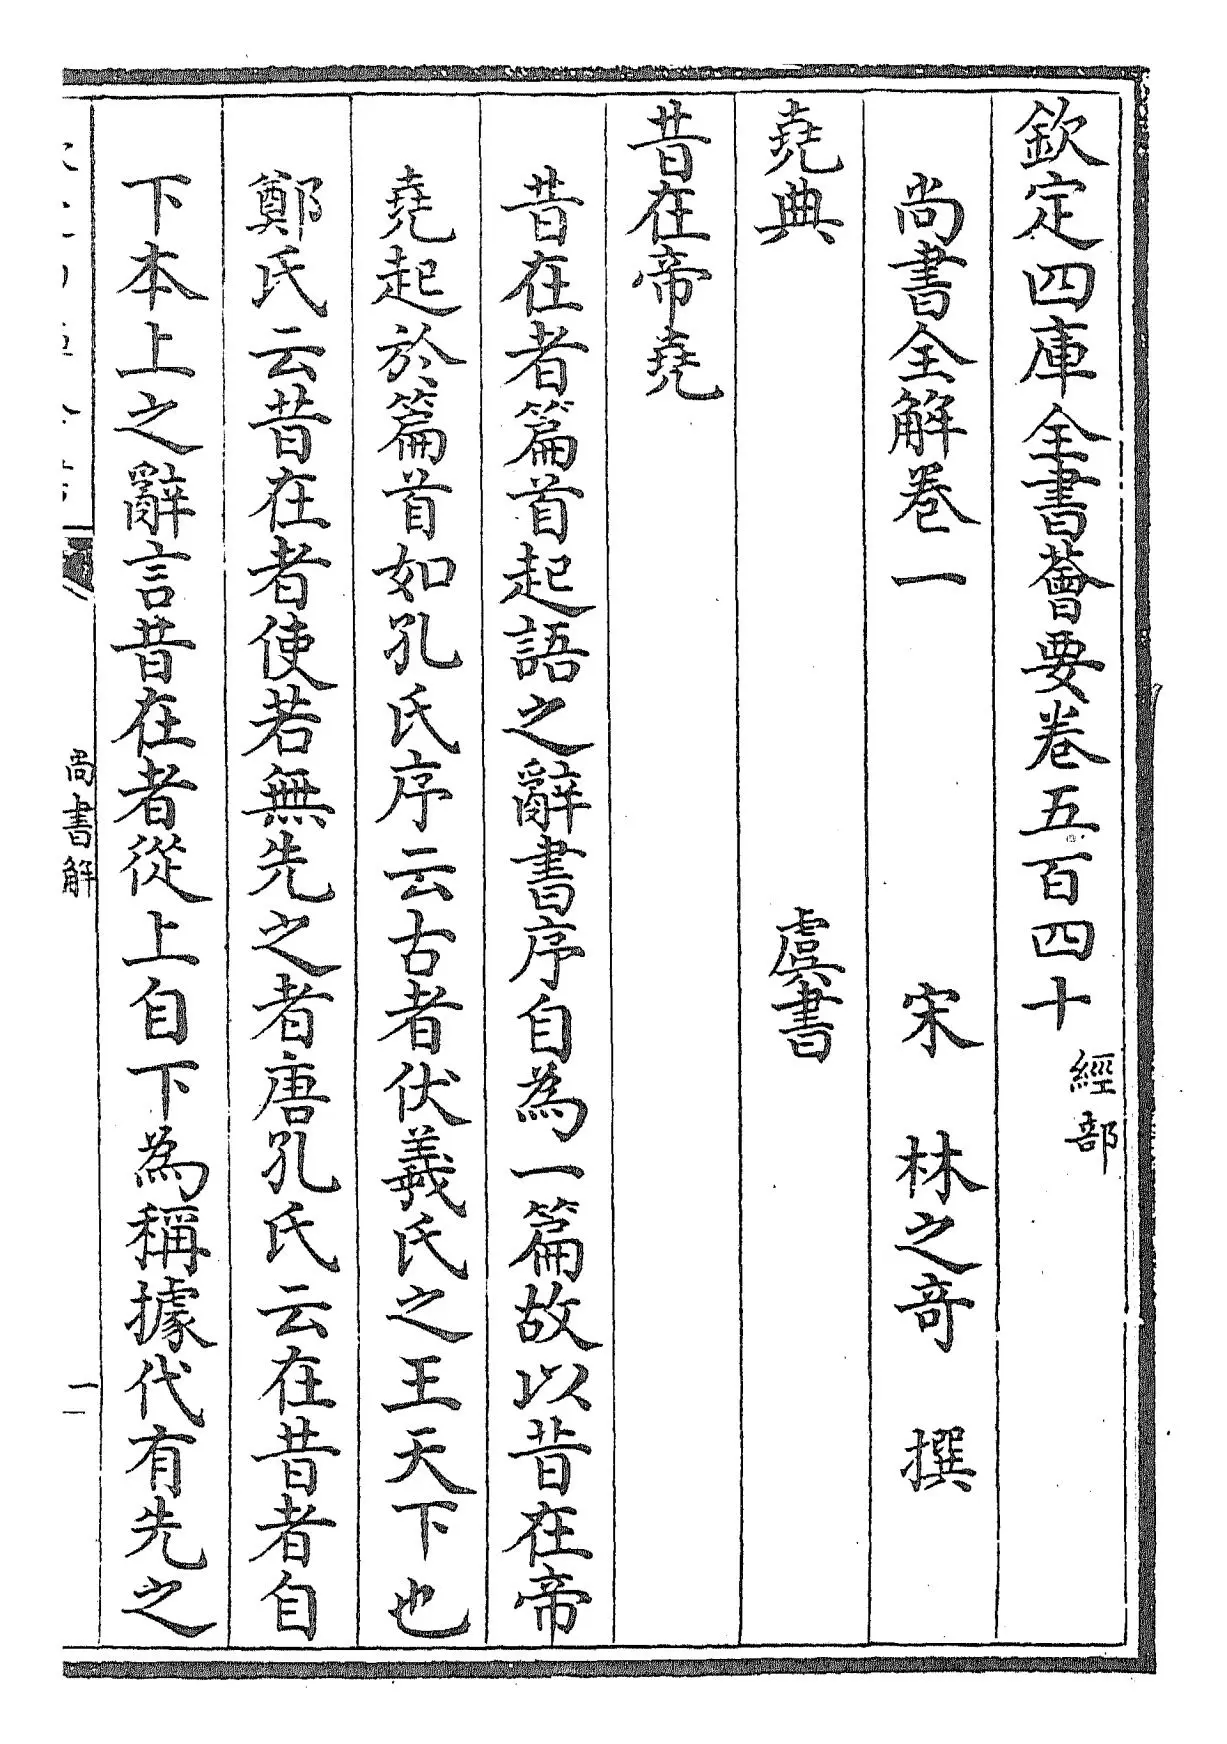 欽定四庫全書薈要卷五百四十 經部
尚書全解卷一 宋 林之奇 撰
堯典 虞書
昔在帝堯
昔在者篇首起語之辭書序自為一篇故以昔在帝
堯起於篇首如孔氏序云古者伏羲氏之王天下也
鄭氏云昔在者使若無先之者唐孔氏云在昔者自
下本上之辭言昔在者從上自下為稱據代有先之
尚書解
一